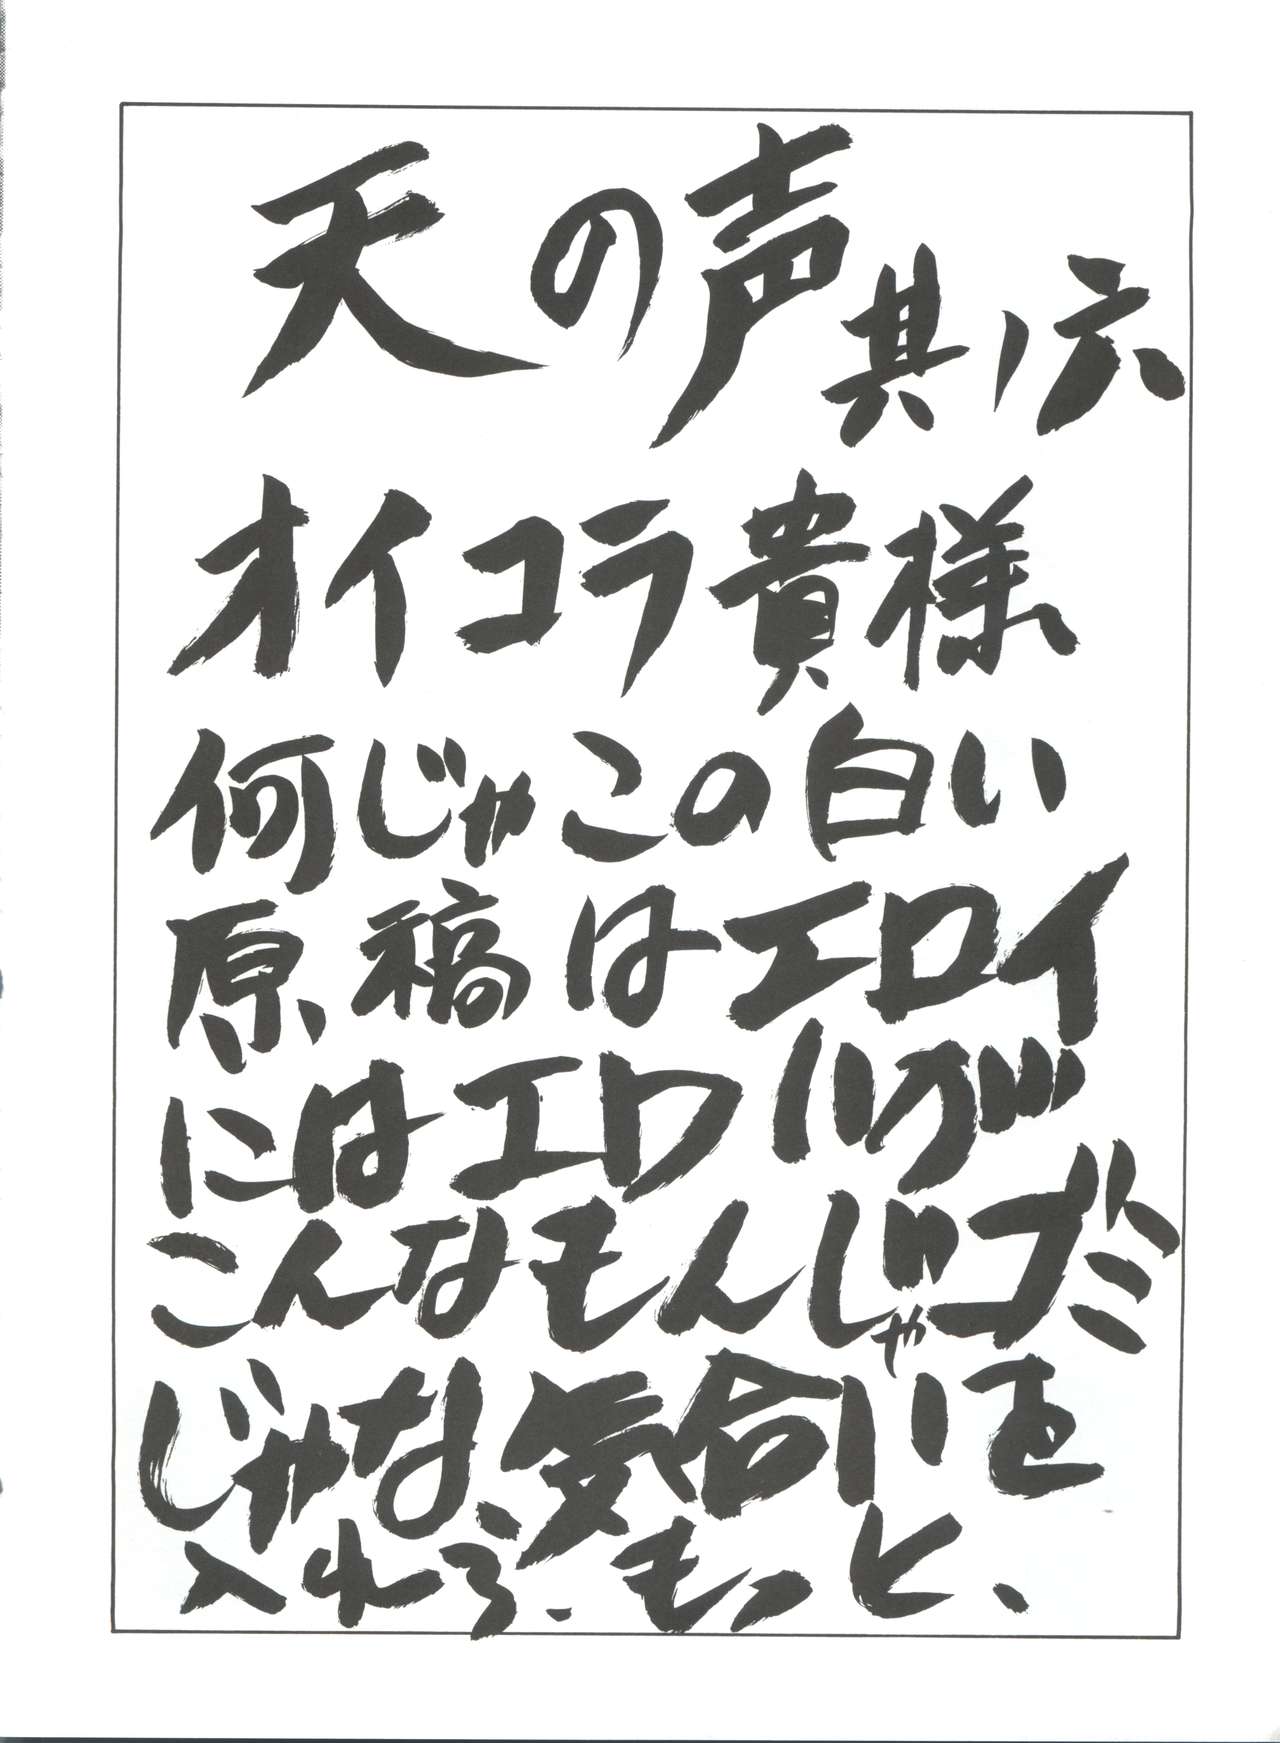 天の声其ノ六
オイコラ貴様
何じゃこの白い
原稿はエロイ
にはエロいが
こんなもんじゃゴミ
じゃな、気合いを
入れろ、もっと、